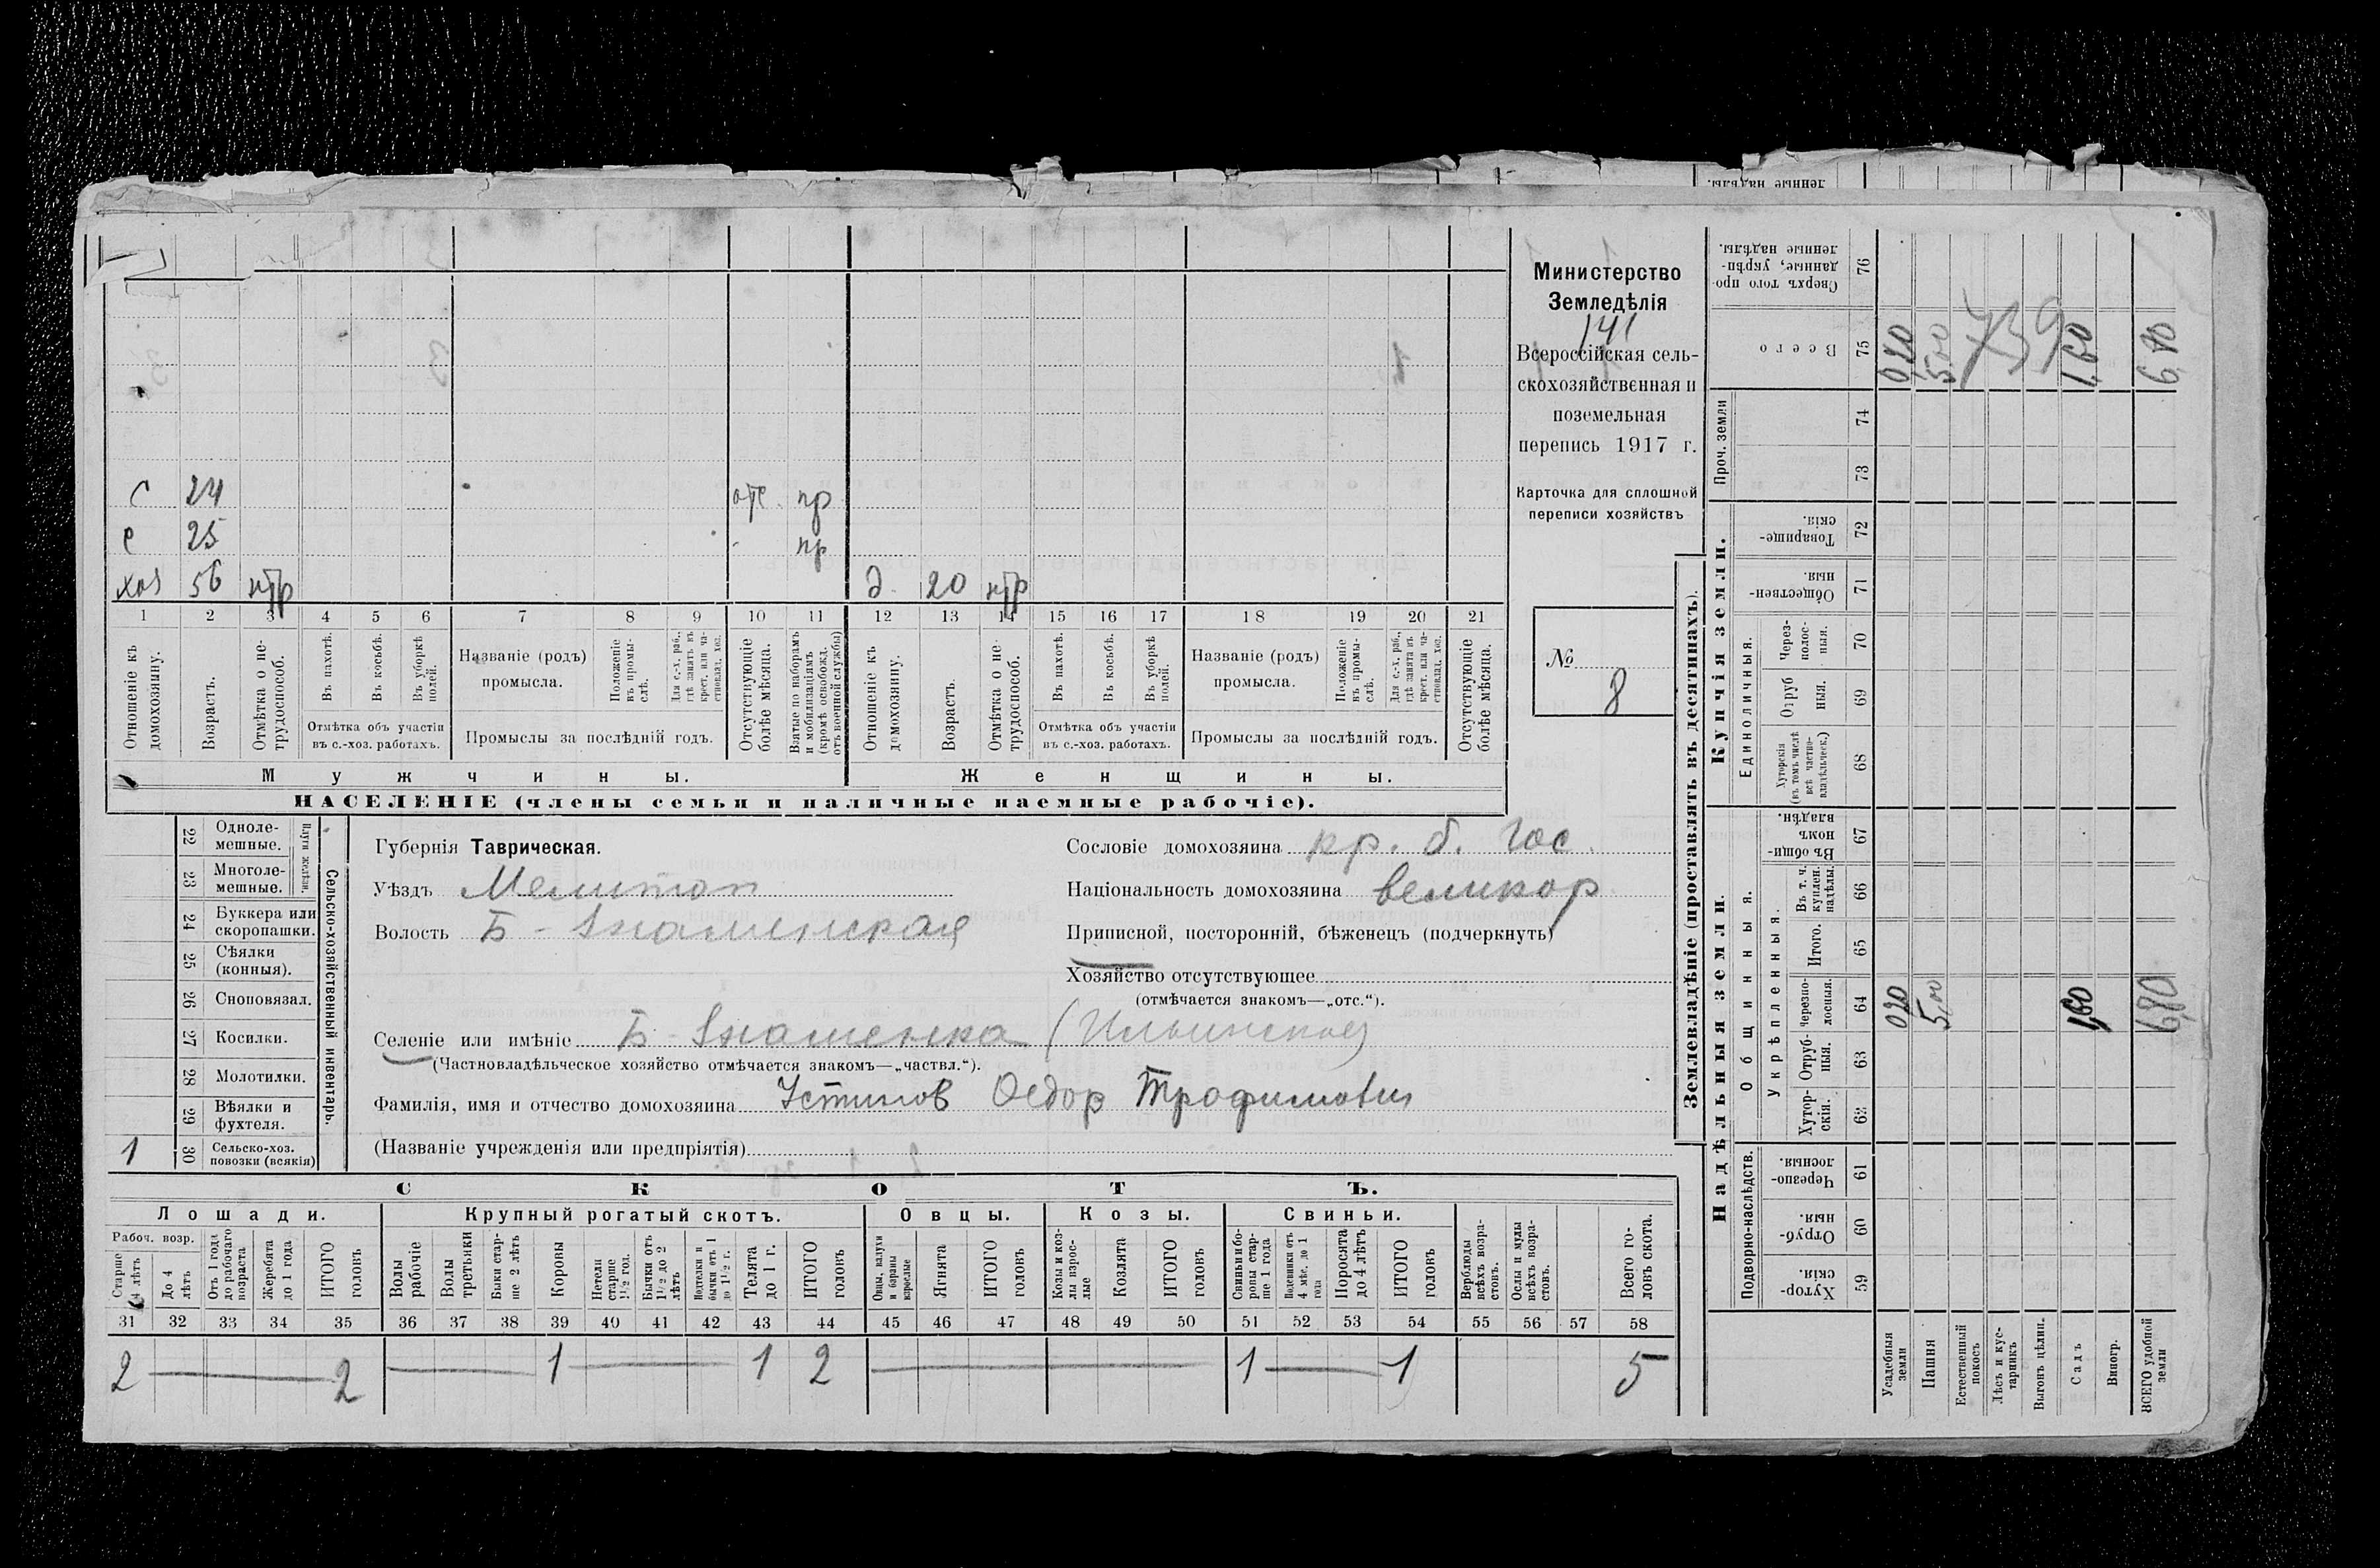 Министерство
Земледѣлія
141
Всероссійская сель-
скохозяйственная и
поземельная
перепись 1917 г.
Карточка для сплошной
переписи хозяйствъ
№ 8
с 24 отс. пр
с 25 пр
хоз 56 нтр д 20 нтр
1 2 3 4 5 6 7 8 9 10 11 12 13 14 15 16 17 18 19 20 21
Отношеніе къ домохозяину.
Возрастъ.
Отмѣтка о не-трудоспособ.
Въ пахотѣ.
Въ косьбѣ.
Въ уборкѣ полей.
Отмѣтка объ участіи въ с.-хоз. работахъ.
Названіе (родъ) промысла.
Положеніе въ промы-слѣ.
Для с.-х. раб., гдѣ занятъ въ крест. или ча-стновлад. хоз.
Промыслы за послѣдній годъ.
Отсутствующіе болѣе мѣсяца.
Взятые по наборамъ и мобилизаціямъ (кромѣ освобожд. отъ военной службы)
Отношеніе къ домохозяину.
Возрастъ.
Отмѣтка о не-трудоспособ.
Въ пахотѣ.
Въ косьбѣ.
Въ уборкѣ полей.
Отмѣтка объ участіи въ с.-хоз. работахъ.
Названіе (родъ) промысла.
Положеніе въ промы-слѣ.
Для с.-х. раб., гдѣ занята въ крест. или ча-стновлад. хоз.
Промыслы за послѣдній годъ.
Отсутствующіе болѣе мѣсяца.
Мужчины. Женщины.
НАСЕЛЕНІЕ (члены семьи и наличные наемные рабочіе).
22 Одноле-мешные.
23 Многоле-мешные.
Плуги желѣзн.
24 Буккера или скоропашки.
25 Сѣялки (конныя).
26 Сноповязал.
27 Косилки.
28 Молотилки.
29 Вѣялки и фухтеля.
1 30 Сельско-хоз. повозки (всякія)
Сельско-хозяйственный инвентарь.
Губернія Таврическая.
Уѣздъ Мелитоп
Волость Б-Знаменская
Сословіе домохозяина кр. б. гос.
Національность домохозяина великор
Приписной, посторонній, бѣженецъ (подчеркнуть)
Хозяйство отсутствующее
(отмѣчается знакомъ—„отс.“).
Селеніе или имѣніе Б-Знаменка (Ильинское)
(Частновладѣльческое хозяйство отмѣчается знакомъ—„частвл.“).
Фамилія, имя и отчество домохозяина Устинов Федор Трофимович
(Названіе учрежденія или предпріятія)
СКОТЪ.
Лошади. Крупный рогатый скотъ. Овцы. Козы. Свиньи.
Рабоч. возр.
Старше 4 лѣтъ
До 4 лѣтъ
Отъ 1 года до рабочаго возраста
Жеребята до 1 года
ИТОГО головъ
Волы рабочіе
Волы третьяки
Быки стар-ше 2 лѣтъ
Коровы
Нетели старше 1½ год.
Бычки отъ 1½ до 2 лѣтъ
Подтелки и бычки отъ 1 до 1½ г.
Телята до 1 г.
ИТОГО головъ
Овцы, валухи и бараны взрослые
Ягнята
ИТОГО головъ
Козы и коз-лы взрос-лые
Козлята
ИТОГО головъ
Свиньи и бо-ровы стар-ше 1 года
Подсвинки отъ 4 мѣс. до 1 года
Поросята до 4 лѣтъ
ИТОГО головъ
Верблюды всѣхъ возра-стовъ.
Ослы и мулы всѣхъ возра-стовъ.
Всего го-ловъ скота.
31 32 33 34 35 36 37 38 39 40 41 42 43 44 45 46 47 48 49 50 51 52 53 54 55 56 57 58
2 2 1 1 2 1 1 5
Землевладѣніе (проставлять въ десятинахъ).
Надѣльныя земли.
Купчія земли.
Проч. земли
Сверхъ того про-данные, укрѣп-ленные надѣлы. 76
Всего 75
74
73
Товарище-скія. 72
Обществен-ныя. 71
Единоличныя.
Через-полос-ныя. 70
Отруб-ныя. 69
Хуторскія (въ томъ числѣ всѣ частно-владѣльческ.) 68
Въ общин-номъ владѣн. 67
Общинныя.
Укрѣпленныя.
Въ т. ч. куплен. надѣлы. 66
Итого. 65
Черезпо-лосныя. 64
Отруб-ныя. 63
Хутор-скія. 62
Подворно-наслѣдств.
Черезпо-лосныя. 61
Отруб-ныя. 60
Хутор-скія. 59
0,20 5,00 1,60 6,80
739
0,20 5,00 1,60 6,80
Усадебныя земли
Пашня
Естественный покосъ
Лѣсъ и кус-тарникъ
Выгонъ цѣлин.
Садъ
Виногр.
ВСЕГО удобной земли
ленные надѣлы.